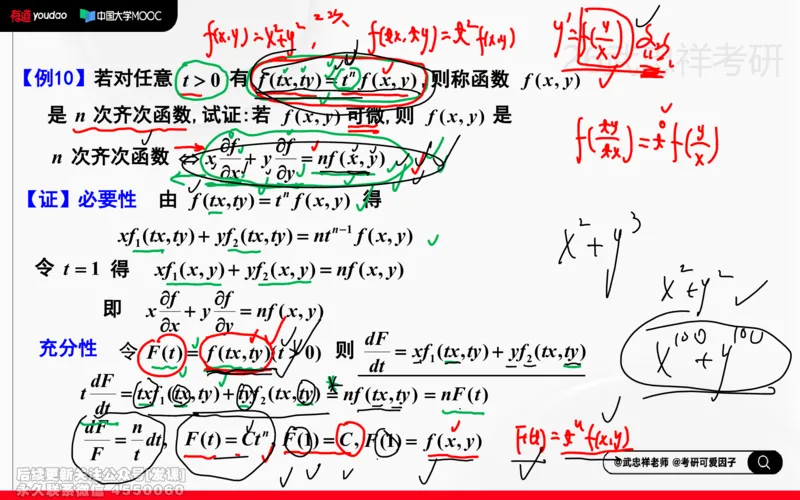 有道 youdao 中国大学MOOC
f(x,y)=x²+y², 2次 f(tx,ty)=t²f(x,y)
y'=f(y/x)
【例10】若对任意 t > 0 有 f(tx,ty) = tⁿ f(x, y),则称函数 f(x, y)
是 n 次齐次函数,试证:若 f(x, y) 可微,则 f(x, y) 是
f(ty/tx)=t⁰f(y/x)
n 次齐次函数 ⇔ x ∂f/∂x + y ∂f/∂y = nf(x, y)
【证】必要性 由 f(tx,ty) = tⁿ f(x, y) 得
xf₁(tx,ty) + yf₂(tx,ty) = ntⁿ⁻¹ f(x, y)
x²+y³
令 t = 1 得 xf₁(x, y) + yf₂(x, y) = nf(x, y)
x²+y²
即 x ∂f/∂x + y ∂f/∂y = nf(x, y)
x¹⁰⁰+y¹⁰⁰
充分性 令 F(t) = f(tx,ty) (t > 0) 则 dF/dt = xf₁(tx,ty) + yf₂(tx,ty)
t dF/dt = txf₁(tx,ty) + tyf₂(tx,ty) = nf(tx,ty) = nF(t)
dF/F = n/t dt, F(t) = Ctⁿ, F(1) = C, F(1) = f(x, y)
F(t)=tⁿf(x,y)
@武忠祥老师 @考研可爱因子
后续更新关注公众号[发课]
永久联系微信 4550060